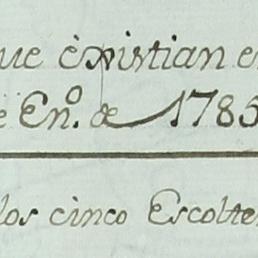 que èxistian e
e En.º de 1785
los cinco Escolte